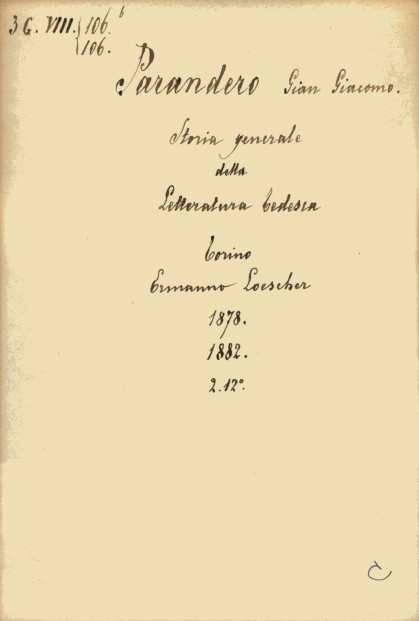 3 G. VIII. { 106. b
106.
Parandero Gian Giacomo.
Storia generale
della
Letteratura tedesca
Torino
Ermanno Loescher
1878.
1882.
2. 12°.
C